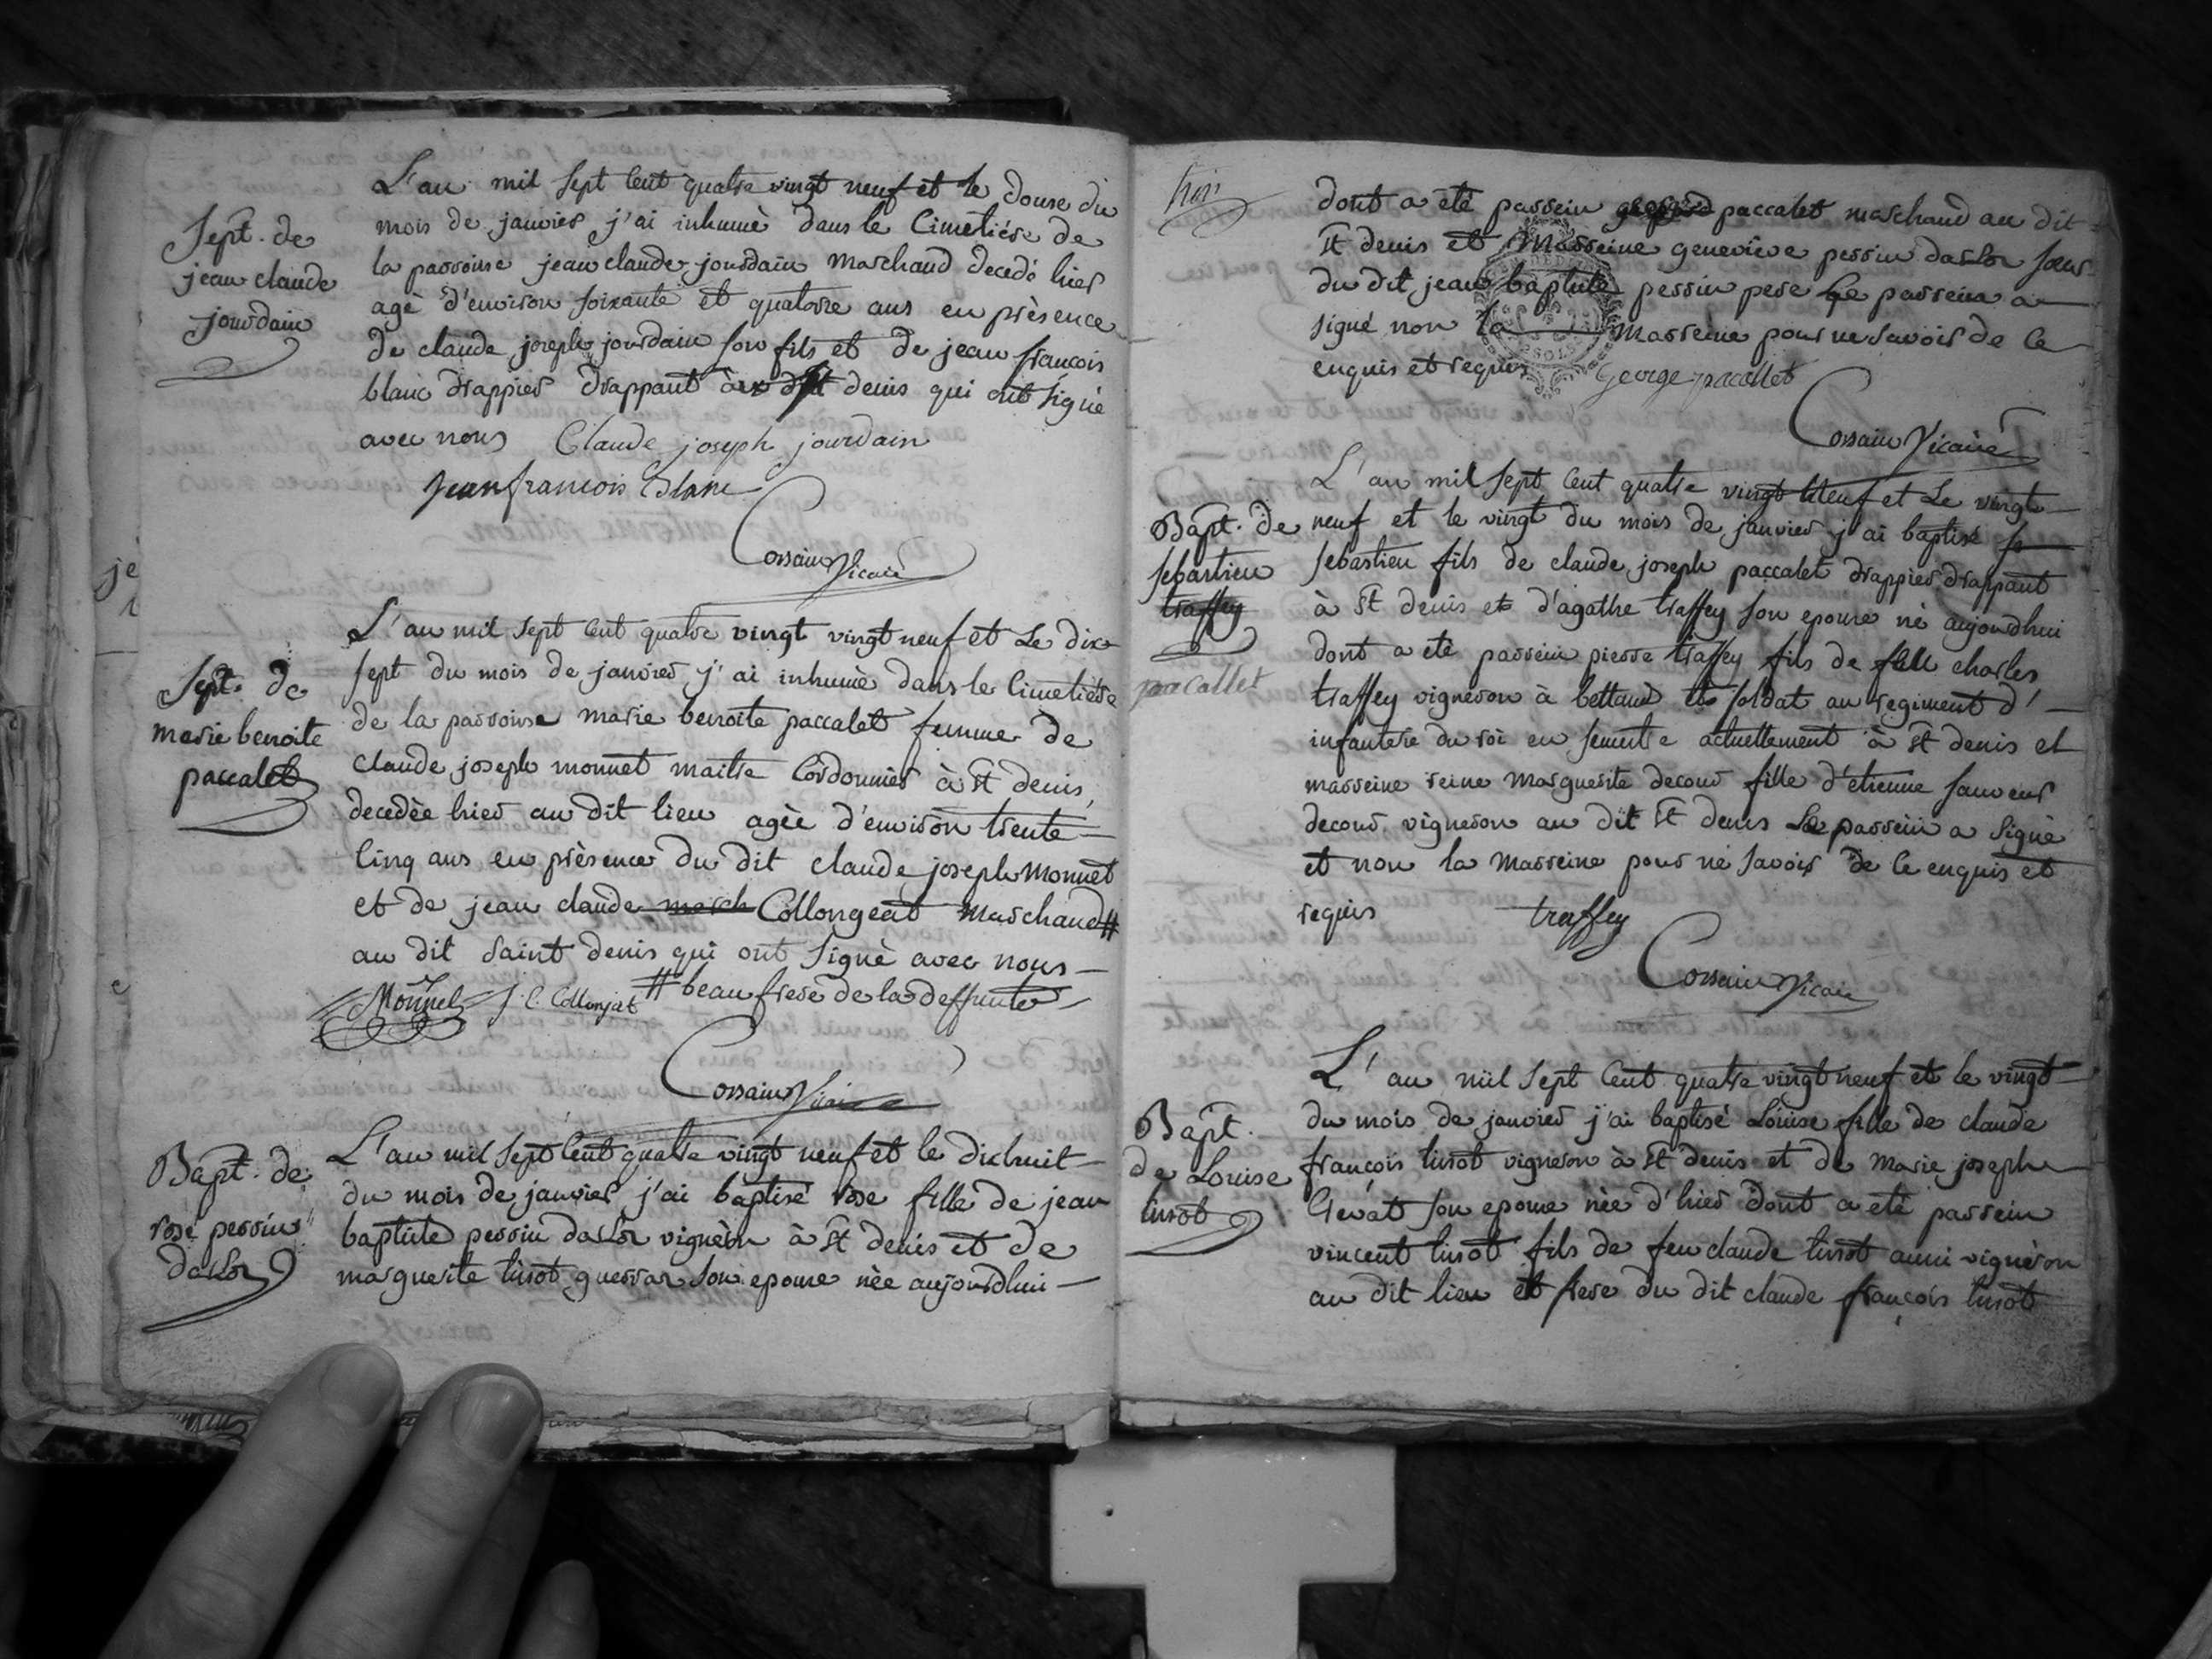 Sept. de
jean claude
jourdain
L'an mil sept cent quatre vingt neuf et le douse du
mois de janvier j'ai inhumè dans le Cimetiére de
la parroisse jean claude jourdain marchand decedé hier
agè d'environ soixante et quatorse ans en prèsence
de claude joseph jourdain son fils et de jean francois
blanc drappier drappant denis qui ont signè
avec nous Claude joseph jourdain
jean francois Blanc
Corsain Vicaire
Sept. de
marie benoite
paccalet
L'an mil sept cent quatre vingt vingt neuf et Le dix
sept du mois de janvier j'ai inhumè dans le Cimetiére
de la parroisse marie benoite paccalet femme de
claude joseph monnet maitre Cordonnier à St denis,
decedèe hier au dit lieu agèe d'environ trente
Cinq ans en prèsence du dit claude joseph Monnet
et de jean claude march Collongeat Marchand #
au dit Saint denis qui ont signè avec nous
Monnet J. C. Collonjat # beaufrere de la deffunte
Corsain Vicaire
Bapt. de
rose perrin
darlor
L'an mil sept cent quatre vingt neuf et le dixhuit
du mois de janvier j'ai baptisé rose fille de jean
baptiste perrin darlor vigneron à St denis et de
marguerite tissot guerrar son epouse nèe aujourdhui
dont a été parrein paccalet marchand au dit
St denis et Marreine genevieve perrin darlor soeur
du dit jean baptiste perrin pere Le parrein a
signé non la Marreine pour ne savoir de ce
enquis et requis George pacallet
Corsain Vicaire
Bapt. de
sebastien
traffey
pacallet
L'an mil sept cent quatre vingt neuf et Le vingt
neuf et le vingt du mois de janvier j'ai baptisé se
sebastien fils de claude joseph paccalet drappier drappant
à St denis et d'agathe traffey son epouse nè aujourdhui
dont a eté parrein pierre traffey fils de feu charles
traffey vigneron à bettand et soldat au regiment d'
infanterie du roi en semestre actuellement à St denis et
marreine reine Marguerite decour fille d'etienne sauveur
decour vigneron au dit St denis Le parrein a Signè
et non la Marreine pour ne savoir de ce enquis et
requis traffey
Corsain Vicaire
Bapt.
de Louise
tissot
L'an mil sept cent quatre vingt neuf et le vingt
du mois de janvier j'ai baptisé Louise fille de claude
françois tissot vigneron à St denis et de Marie joseph
son epouse nèe d'hier dont a eté parrein
vincent tissot fils de feu claude tissot aussi vigneron
au dit lieu et frere du dit claude françois tissot